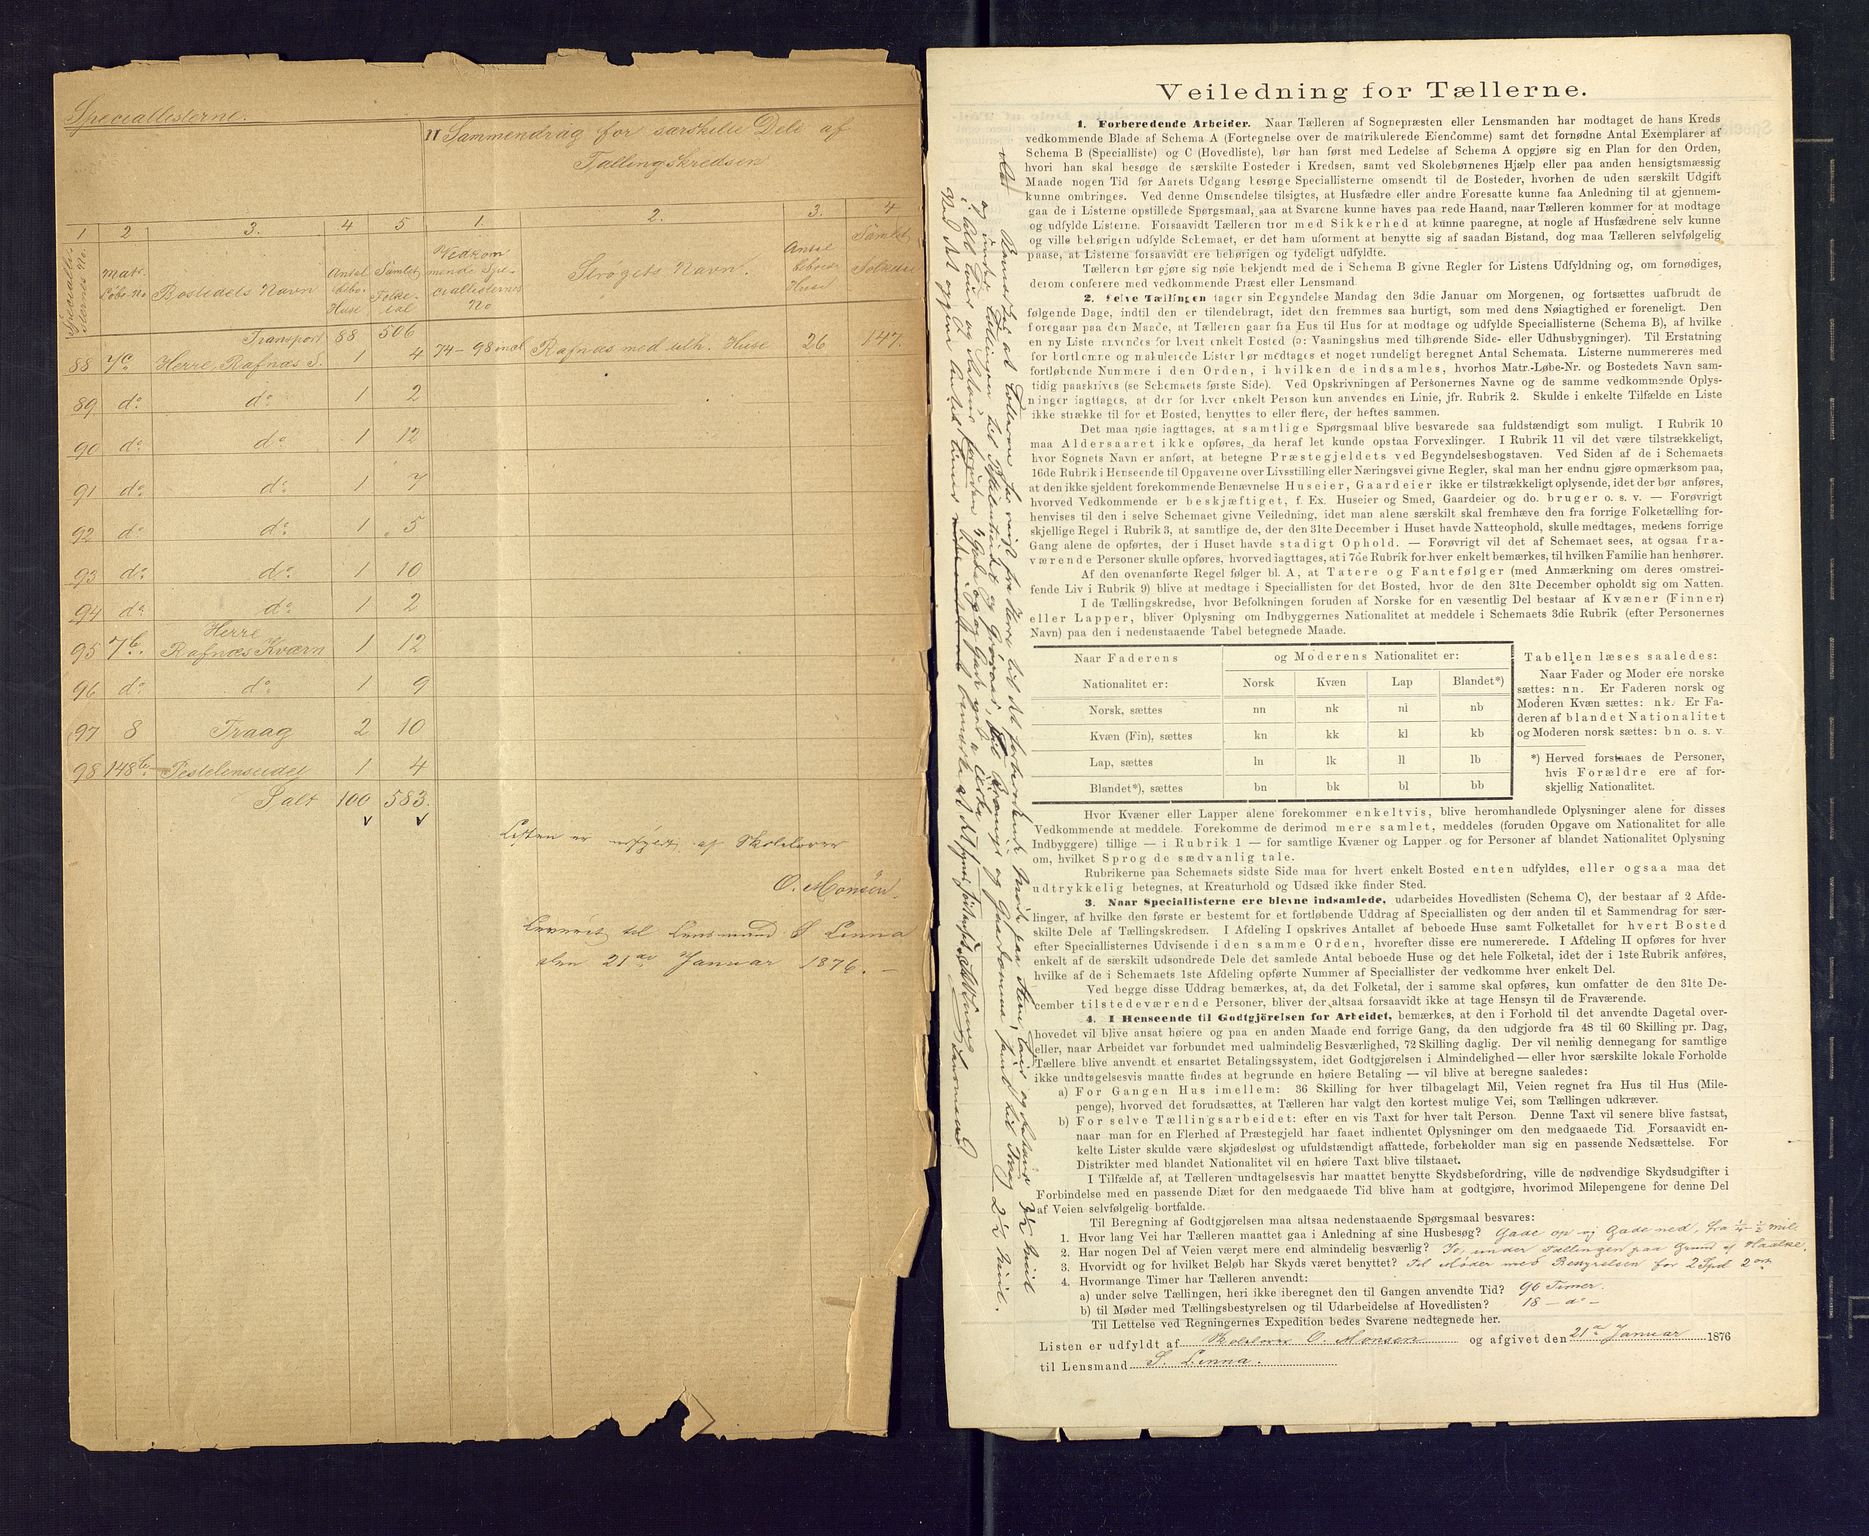 Speciallisterne.
II Sammendrag for særskilte Dele af
Tællingskredsen
1 2 3. 4 5 1. 2. 3. 4
Speciallisternes No. Matr. Løbe-No Bostedets Navn Antal bebo. Huse Samlet Folketal Vedkommende Speciallisternes No Strøgets Navn. Antal beboede Huse Samlet Folketal
Transport 88 506
88 7c Herre, Rafnæs S. 1 4 74-98 incl Rafnæs med ulh. Huse 26 147.
89 do do 1 2
90 do do 1 12
91 do do 1 7
92 do do 1 5
93 do do 1 10
94 do do 1 2
95 7b. Herre Rafnæs Kværn 1 12
96 do do 1 9
97 8 Traag 2 10
98 148b Testelensudet 1 4
Ialt 100 583.
Listen er udfyldt af Skolelærer
O. Monsen.
Leveret til Lensmand S Linna
den 21de Januar 1876. –
Veiledning for Tællerne.
1. Forberedende Arbeider. Naar Tælleren af Sognepræsten eller Lensmanden har modtaget de hans Kreds
vedkommende Blade af Schema A (Fortegnelse over de matrikulerede Eiendomme) samt det fornødne Antal Exemplarer af
Schema B (Specialliste) og C (Hovedliste), bør han først med Ledelse af Schema A opgjøre sig en Plan for den Orden,
hvori han skal besøge de særskilte Bosteder i Kredsen, samt ved Skolebørnenes Hjælp eller paa anden hensigtsmæssig
Maade nogen Tid før Aarets Udgang besørge Speciallisterne omsendt til de Bosteder, hvorhen de uden særskilt Udgift
kunne ombringes. Ved denne Omsendelse tilsigtes, at Husfædre eller andre Foresatte kunne faa Anledning til at gjennem-
gaa de i Listerne opstillede Spørgsmaal, saa at Svarene kunne haves paa rede Haand, naar Tælleren kommer for at modtage
og udfylde Listerne. Forsaavidt Tælleren tror med Sikkerhed at kunne paaregne, at nogle af Husfædrene selv kunne
og ville behørigen udfylde Schemaet, er det ham uforment at benytte sig af saadan Bistand, dog maa Tælleren selvfølgelig
paase, at Listerne forsaavidt ere behørigen og tydeligt udfyldte.
Tælleren bør gjøre sig nøie bekjendt med de i Schema B givne Regler for Listens Udfyldning og, om fornødiges,
derom conferere med vedkommende Præst eller Lensmand.
2. Selve Tællingen tager sin Begyndelse Mandag den 3die Januar om Morgenen, og fortsættes uafbrudt de
følgende Dage, indtil den er tilendebragt, idet den fremmes saa hurtigt, som med dens Nøiagtighed er foreneligt. Den
foregaar paa den Maade, at Tælleren gaar fra Hus til Hus for at modtage og udfylde Speciallisterne (Schema B), af hvilke
en ny Liste anvendes for hvert enkelt Bosted (ɔ: Vaaningshus med tilhørende Side- eller Udhusbygninger). Til Erstatning
for bortkomne og makulerede Lister bør medtages et noget rundeligt beregnet Antal Schemata. Listerne nummereres med
fortløbende Nummere i den Orden, i hvilken de indsamles, hvorhos Matr.-Løbe-Nr. og Bostedets Navn sam-
tidig paaskrives (se Schemaets første Side). Ved Opskrivningen af Personernes Navne og de samme vedkommende Oplys-
ninger iagttages, at der for hver enkelt Person kun anvendes en Linie, jfr. Rubrik 2. Skulde i enkelte Tilfælde en Liste
ikke strække til for et Bosted, benyttes to eller flere, der heftes sammen.
Det maa nøie iagttages, at samtlige Spørgsmaal blive besvarede saa fuldstændigt som muligt. I Rubrik 10
maa Aldersaaret ikke opføres, da heraf let kunde opstaa Forvexlinger. I Rubrik 11 vil det være tilstrækkeligt,
hvor Sognets Navn er anført, at betegne Præstegjeldets ved Begyndelsesbogstaven. Ved Siden af de i Schemaets
16de Rubrik i Henseende til Opgaverne over Livsstilling eller Næringsvei givne Regler, skal man her endnu gjøre opmærksom paa,
at den ikke sjeldent forekommende Benævnelse Huseier, Gaardeier ikke er tilstrækkeligt oplysende, idet der bør anføres,
hvorved Vedkommende er beskjæftiget, f. Ex. Huseier og Smed, Gaardeier og do. bruger o. s. v. — Forøvrigt
henvises til den i selve Schemaet givne Veiledning, idet man alene særskilt skal fremhæve den fra forrige Folketælling for-
skjellige Regel i Rubrik 3, at samtlige de, der den 31te December i Huset havde Natteophold, skulle medtages, medens forrige
Gang alene de opførtes, der i Huset havde stadigt Ophold. — Forøvrigt vil det af Schemaet sees, at ogsaa fra-
værende Personer skulle opføres, hvorved iagttages, at i 7de Rubrik for hver enkelt bemærkes, til hvilken Familie han henhører.
Af den ovenanførte Regel følger bl. A, at Tatere og Fantefølger (med Anmærkning om deres omstrei-
fende Liv i Rubrik 9) blive at medtage i Speciallisten for det Bosted, hvor de den 31te December opholdt sig om Natten.
I de Tællingskredse, hvor Befolkningen foruden af Norske for en væsentlig Del bestaar af Kvæner (Finner)
eller Lapper, bliver Oplysning om Indbyggernes Nationalitet at meddele i Schemaets 3die Rubrik (efter Personernes
Navn) paa den i nedenstaaende Tabel betegnede Maade.
Naar Faderens og Moderens Nationalitet er:
Nationalitet er: Norsk Kvæn Lap Blandet*)
Norsk, sættes nn nk nl nb
Kvæn (Fin), sættes kn kk kl kb
Lap, sættes ln lk ll lb
Blandet*), sættes bn bk bl bb
Tabellen læses saaledes:
Naar Fader og Moder ere norske
sættes: nn. Er Faderen norsk og
Moderen Kvæn sættes: nk. Er Fa-
deren af blandet Nationalitet
og Moderen norsk sættes: bn o. s. v.
*) Herved forstaaes de Personer,
hvis Forældre ere af for-
skjellig Nationalitet.
Hvor Kvæner eller Lapper alene forekommer enkeltvis, blive heromhandlede Oplysninger alene for disses
Vedkommende at meddele. Forekomme de derimod mere samlet, meddeles (foruden Opgave om Nationalitet for alle
Indbyggere) tillige — i Rubrik 1 — for samtlige Kvæner og Lapper og for Personer af blandet Nationalitet Oplysning
om, hvilket Sprog de sædvanlig tale.
Rubrikerne paa Schemaets sidste Side maa for hvert enkelt Bosted enten udfyldes, eller ogsaa maa det
udtrykkelig betegnes, at Kreaturhold og Udsæd ikke finder Sted.
3. Naar Speciallisterne ere blevne indsamlede, udarbeides Hovedlisten (Schema C), der bestaar af 2 Afde-
linger, af hvilke den første er bestemt for et fortløbende Uddrag af Speciallisten og den anden til et Sammendrag for sær-
skilte Dele af Tællingskredsen. I Afdeling I opskrives Antallet af beboede Huse samt Folketallet for hvert Bosted
efter Speciallisternes Udvisende i den samme Orden, hvorefter disse ere numererede. I Afdeling II opføres for hver
enkelt af de særskilt udsondrede Dele det samlede Antal beboede Huse og det hele Folketal, idet der i 1ste Rubrik anføres,
hvilke af de i Schemaets 1ste Afdeling opførte Nummer af Speciallister der vedkomme hver enkelt Del.
Ved begge disse Uddrag bemærkes, at, da det Folketal, der i samme skal opføres, kun omfatter de den 31te De-
cember tilstedeværende Personer, bliver der altsaa forsaavidt ikke at tage Hensyn til de Fraværende.
4. I Henseende til Godtgjörelsen for Arbeidet, bemærkes, at den i Forhold til det anvendte Dagetal over-
hovedet vil blive ansat høiere og paa en anden Maade end forrige Gang, da den udgjorde fra 48 til 60 Skilling pr. Dag,
eller, naar Arbeidet var forbundet med ualmindelig Besværlighed, 72 Skilling daglig. Der vil nemlig dennegang for samtlige
Tællere blive anvendt et ensartet Betalingssystem, idet Godtgjørelsen i Almindelighed — eller hvor særskilte lokale Forholde
ikke undtagelsesvis maatte findes at begrunde en høiere Betaling — vil blive at beregne saaledes:
a) For Gangen Hus imellem: 36 Skilling for hver tilbagelagt Mil, Veien regnet fra Hus til Hus (Mile-
penge), hvorved det forudsættes, at Tælleren har valgt den kortest mulige Vei, som Tællingen udkræver.
b) For selve Tællingsarbeidet: efter en vis Taxt for hver talt Person. Denne Taxt vil senere blive fastsat,
naar man for en Flerhed af Præstegjeld har faaet indhentet Oplysninger om den medgaaede Tid. Forsaavidt en-
kelte Lister skulde være skjødesløst og ufuldstændigt affattede, forbeholder man sig en passende Nedsættelse. For
Distrikter med blandet Nationalitet vil en høiere Taxt blive tilstaaet.
I Tilfælde af, at Tælleren undtagelsesvis har maattet benytte Skydsbefordring, ville de nødvendige Skydsudgifter i
Forbindelse med en passende Diæt for den medgaaede Tid blive ham at godtgjøre, hvorimod Milepengene for denne Del
af Veien selvfølgelig bortfalde.
Til Beregning af Godtgjørelsen maa altsaa nedenstaaende Spørgsmaal besvares:
1. Hvor lang Vei har Tælleren maattet gaa i Anledning af sine Husbesøg? Gade op og Gade ned, fra 1/4 - 1/2 mil
2. Har nogen Del af Veien været mere end almindelig besværlig? Jo, under Tællingen paa Grund af Haalke.
3. Horvidt og for hvilket Beløb har Skyds været benyttet? Til Møder med Bestyrelsen for 2 Spd 2 ort
4. Hvormange Timer har Tælleren anvendt:
a) under selve Tællingen, heri ikke iberegnet den til Gangen anvendte Tid? 96 Timer.
b) til Møder med Tællingsbestyrelsen og til Udarbeidelse af Hovedlisten? 18 – do –
Til Lettelse ved Regningernes Expedition bedes Svarene nedtegnede her.
Listen er udfyldt af Skolelærer O. Monsen og afgivet den 21de Januar 1876
til Lensmand S. Linna.